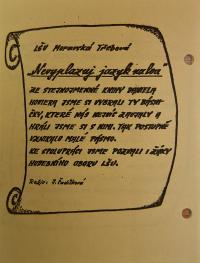 LŠU Moravská Třebová
„Nevyplazuj jazyk na lva"
ZE STEJNOJMENNÉ KNIHY DANIELA
HOVIERA JSME SI VYBRALI TY BÁSNI-
ČKY, KTERÉ NÁS NEJVÍC ZAUJALY A
HRÁLI JSME SI S NIMI. TAK POSTUPNĚ
VZNIKALO MALÉ PÁSMO.
KE SPOLUPRÁCI JSME POZVALI I ŽÁKY
HUDEBNÍHO OBORU LŠU.
Režie: J.